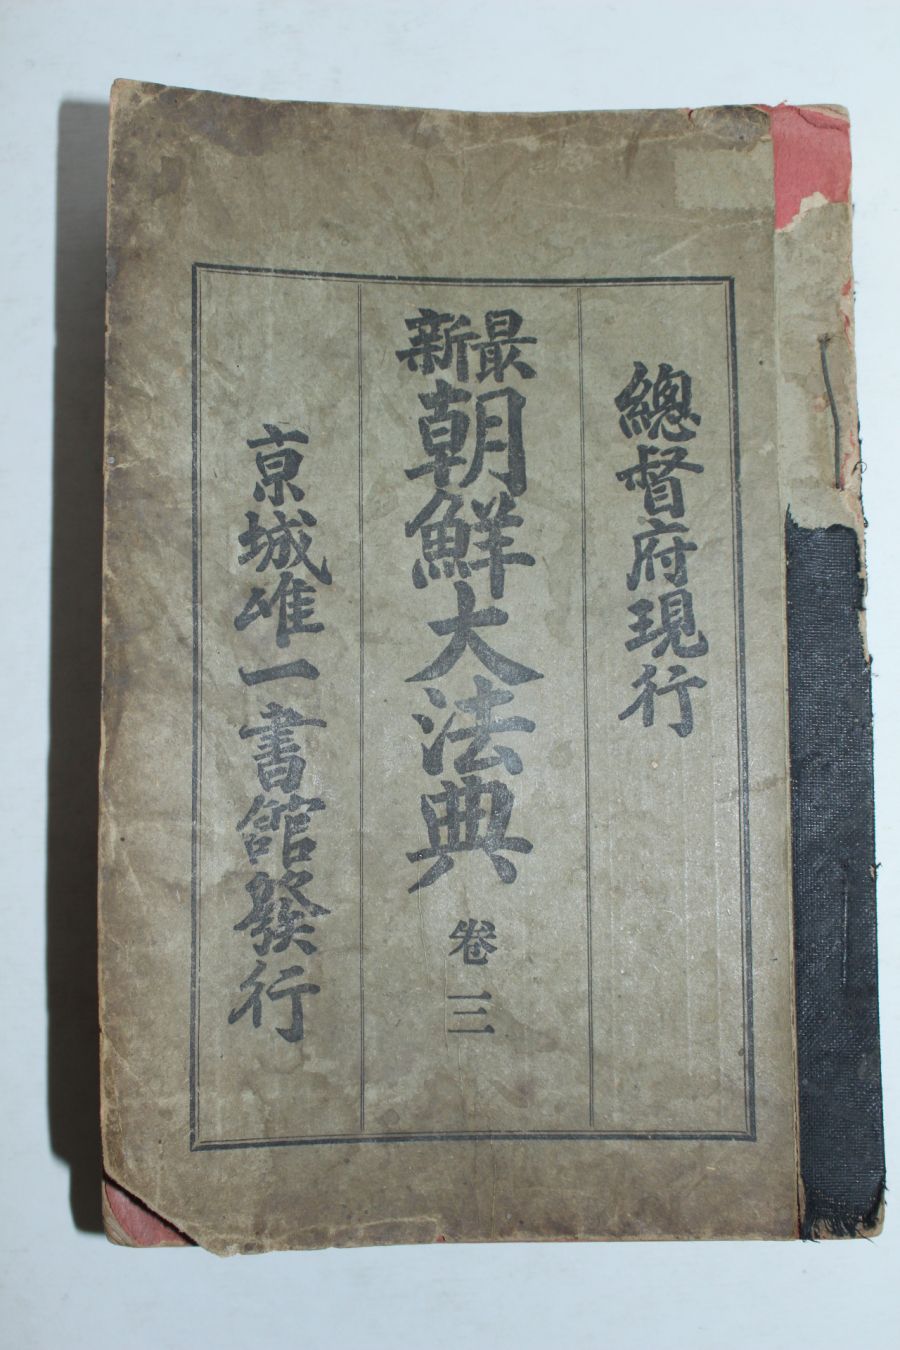 總督府現行
最新
朝鮮大法典
卷三
京城唯一書館發行